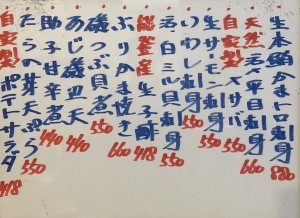 生本鮪かまトロ刺身 880
天然活〆平目刺身 660
自家製〆サバ 550
生サーモン刺身 550
いわし刺身 550
活白ミル貝刺身 550
能登産生子酢 418
ぶりかま焼き 660
磯つぶ貝煮 550
あじ磯辺天 440
助子甘煮 440
たらの芽天ぷら 550
自家製ポテトサラダ 418